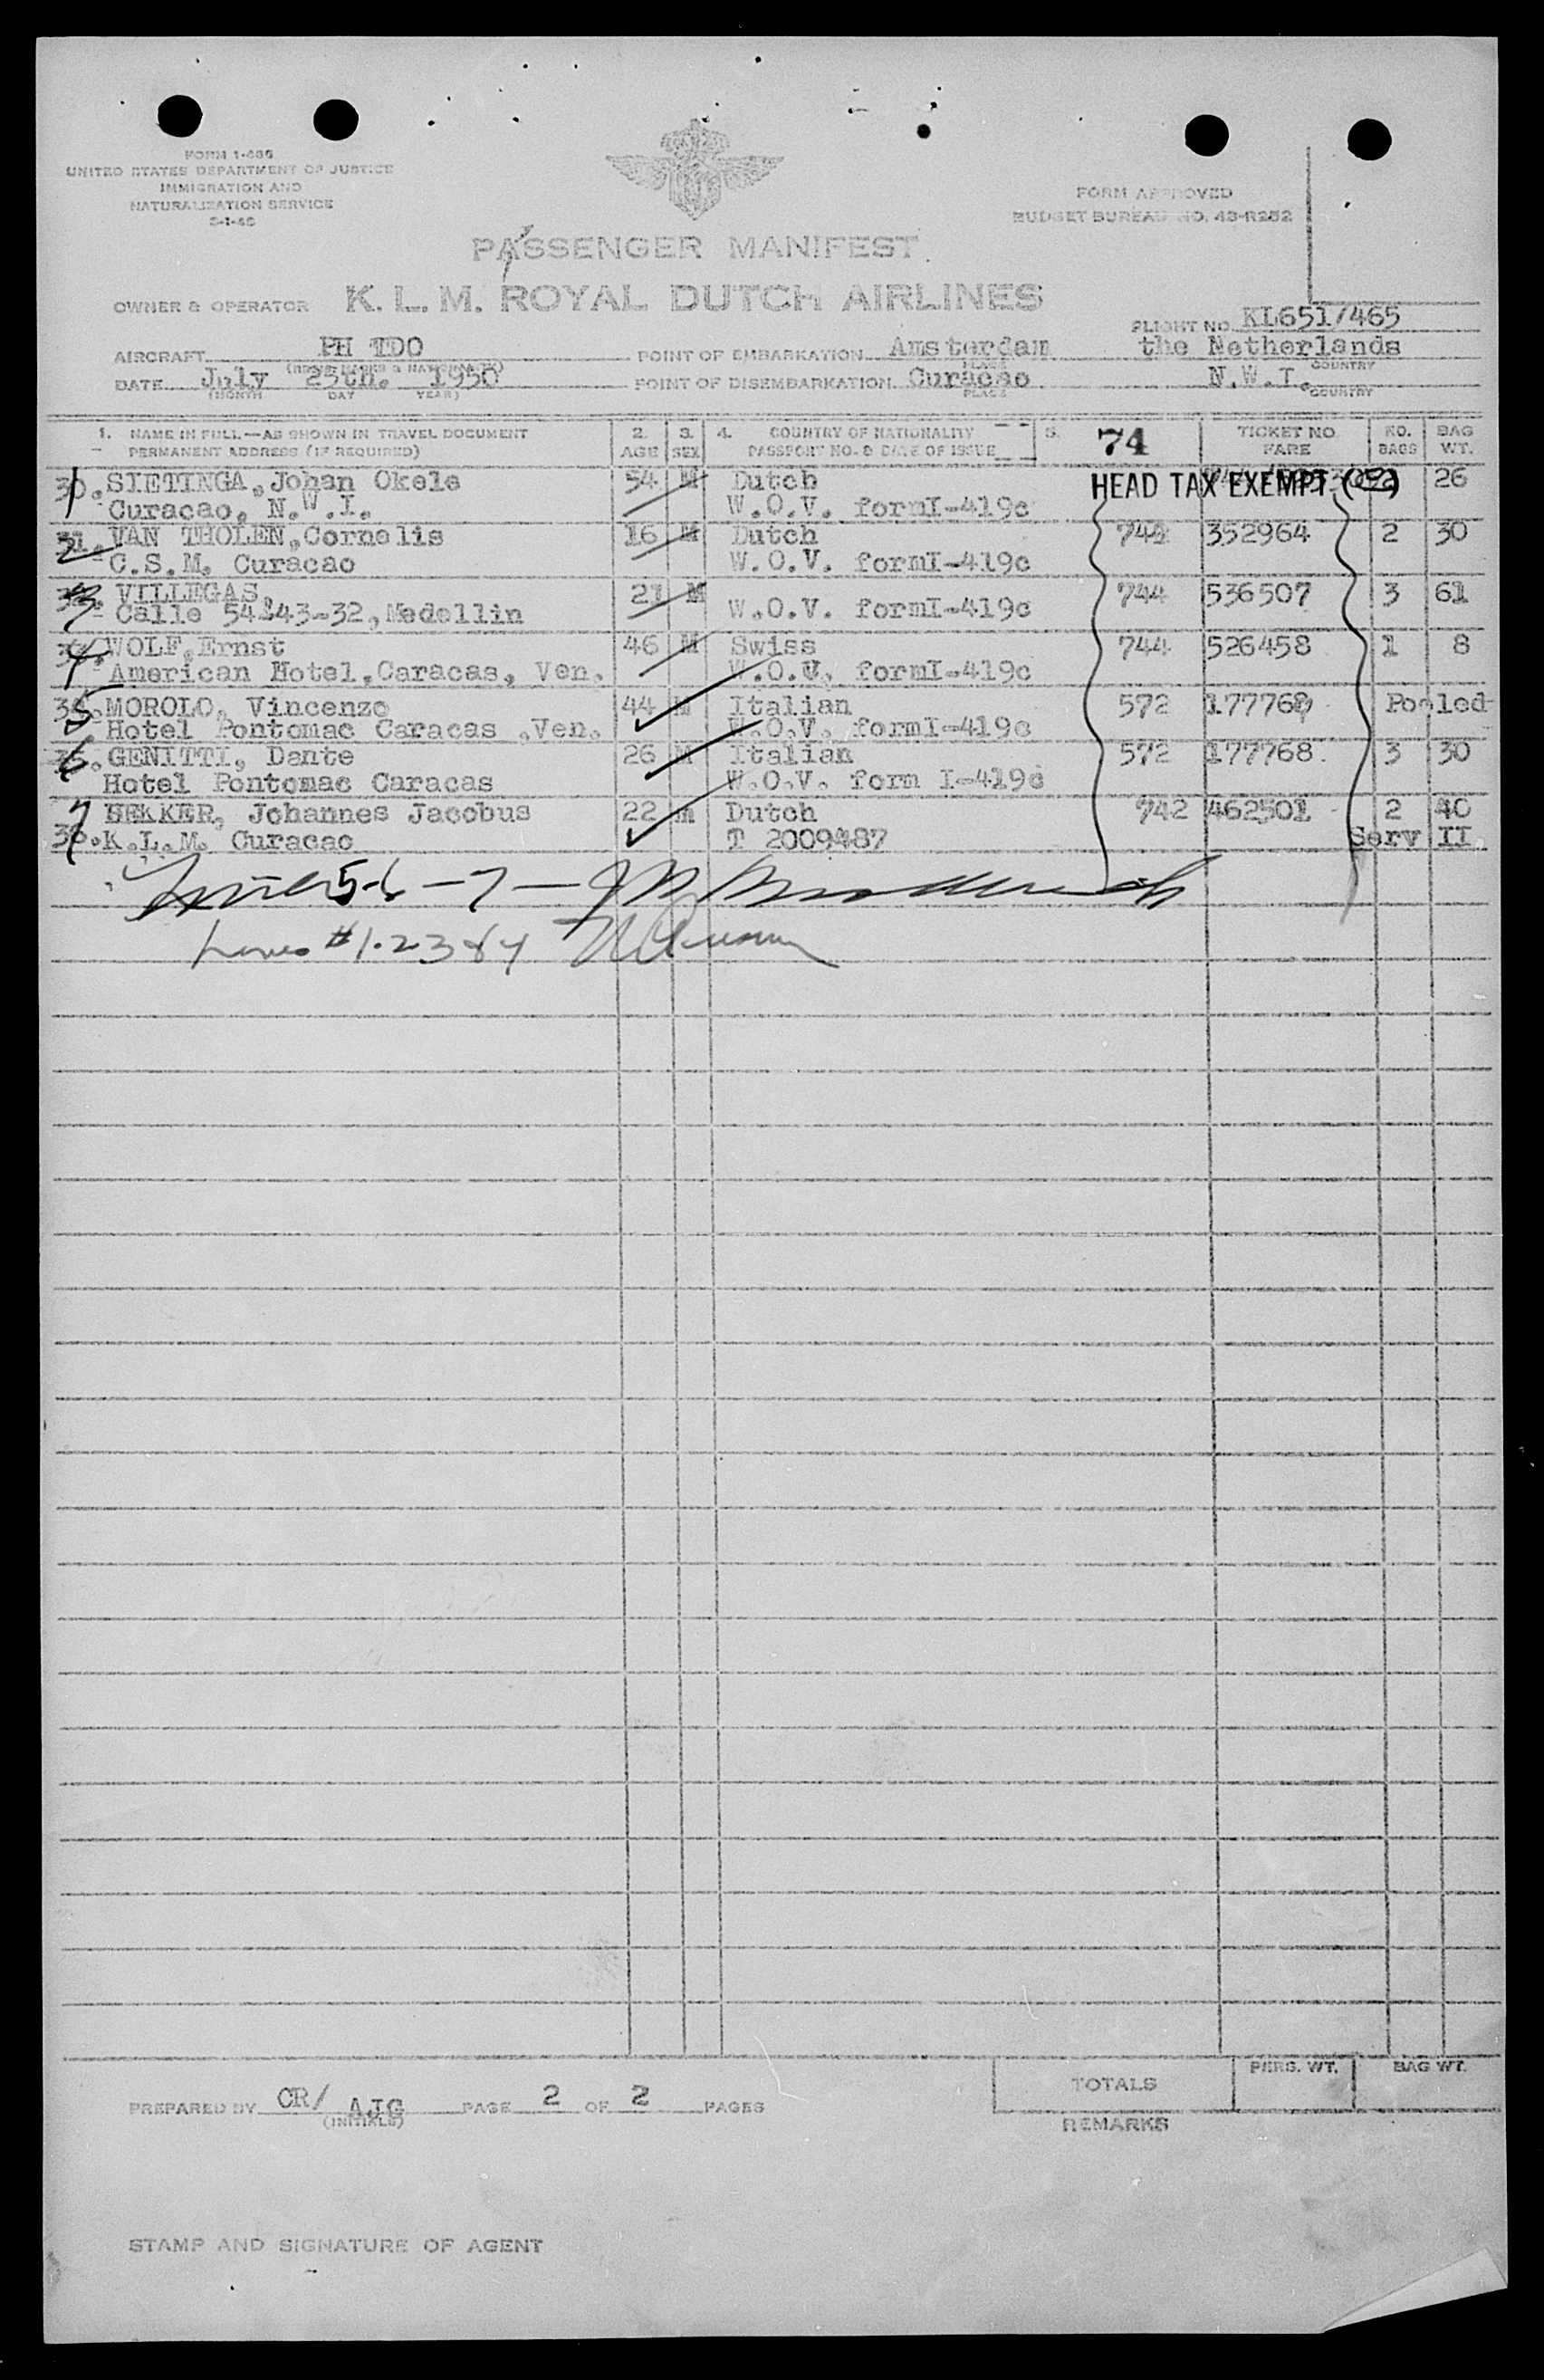 FORM I-466
UNITED STATES DEPARTMENT OF JUSTICE
IMMIGRATION AND
NATURALIZATION SERVICE
FORM APPROVED
BUDGET BUREAU NO. 43-R252
PASSENGER MANIFEST
OWNER & OPERATOR K. L. M. ROYAL DUTCH AIRLINES
FLIGHT NO. KL651/465
AIRCRAFT PH TDO POINT OF EMBARKATION Amsterdam the Netherlands
PLACE COUNTRY
DATE July 25th. 1950 POINT OF DISEMBARKATION Curacao N.W.I.
(MONTH DAY YEAR) PLACE COUNTRY
1. NAME IN FULL—AS SHOWN IN TRAVEL DOCUMENT 2. 3. 4. COUNTRY OF NATIONALITY 5. 74 TICKET NO. NO. BAG
PERMANENT ADDRESS (IF REQUIRED) AGE SEX PASSPORT NO. & DATE OF ISSUE FARE BAGS WT.
1 30. SIETINGA, Johan Okele 54 M Dutch HEAD TAX EXEMPT 26
Curacao, N.W.I. W.O.V. formI-419c
2 31. VAN THOLEN, Cornelis 16 M Dutch 744 352964 2 30
C.S.M. Curacao W.O.V. formI-419c
3 VILLEGAS, 27 M 744 536507 3 61
Calle 54-43-32, Medellin W.O.V. formI-419c
4 WOLF, Ernst 46 M Swiss 744 526458 1 8
American Hotel, Caracas, Ven. W.O.V. formI-419c
5 MOROLO, Vincenzo 44 M Italian 572 177769 Pooled
Hotel Pontomac Caracas ,Ven. W.O.V. formI-419c
6 GENITTI, Dante 26 M Italian 572 177768 3 30
Hotel Pontomac Caracas W.O.V. form I-419c
7 BEKKER, Johannes Jacobus 22 m Dutch 742 462501 2 40
36. K.L.M. Curacao T 2009487 Serv II
5-6-7-
Lines #1.2 3 & 4
PREPARED BY CR/ AJG PAGE 2 OF 2 PAGES
(INITIALS)
TOTALS PERS. WT. BAG WT.
REMARKS
STAMP AND SIGNATURE OF AGENT